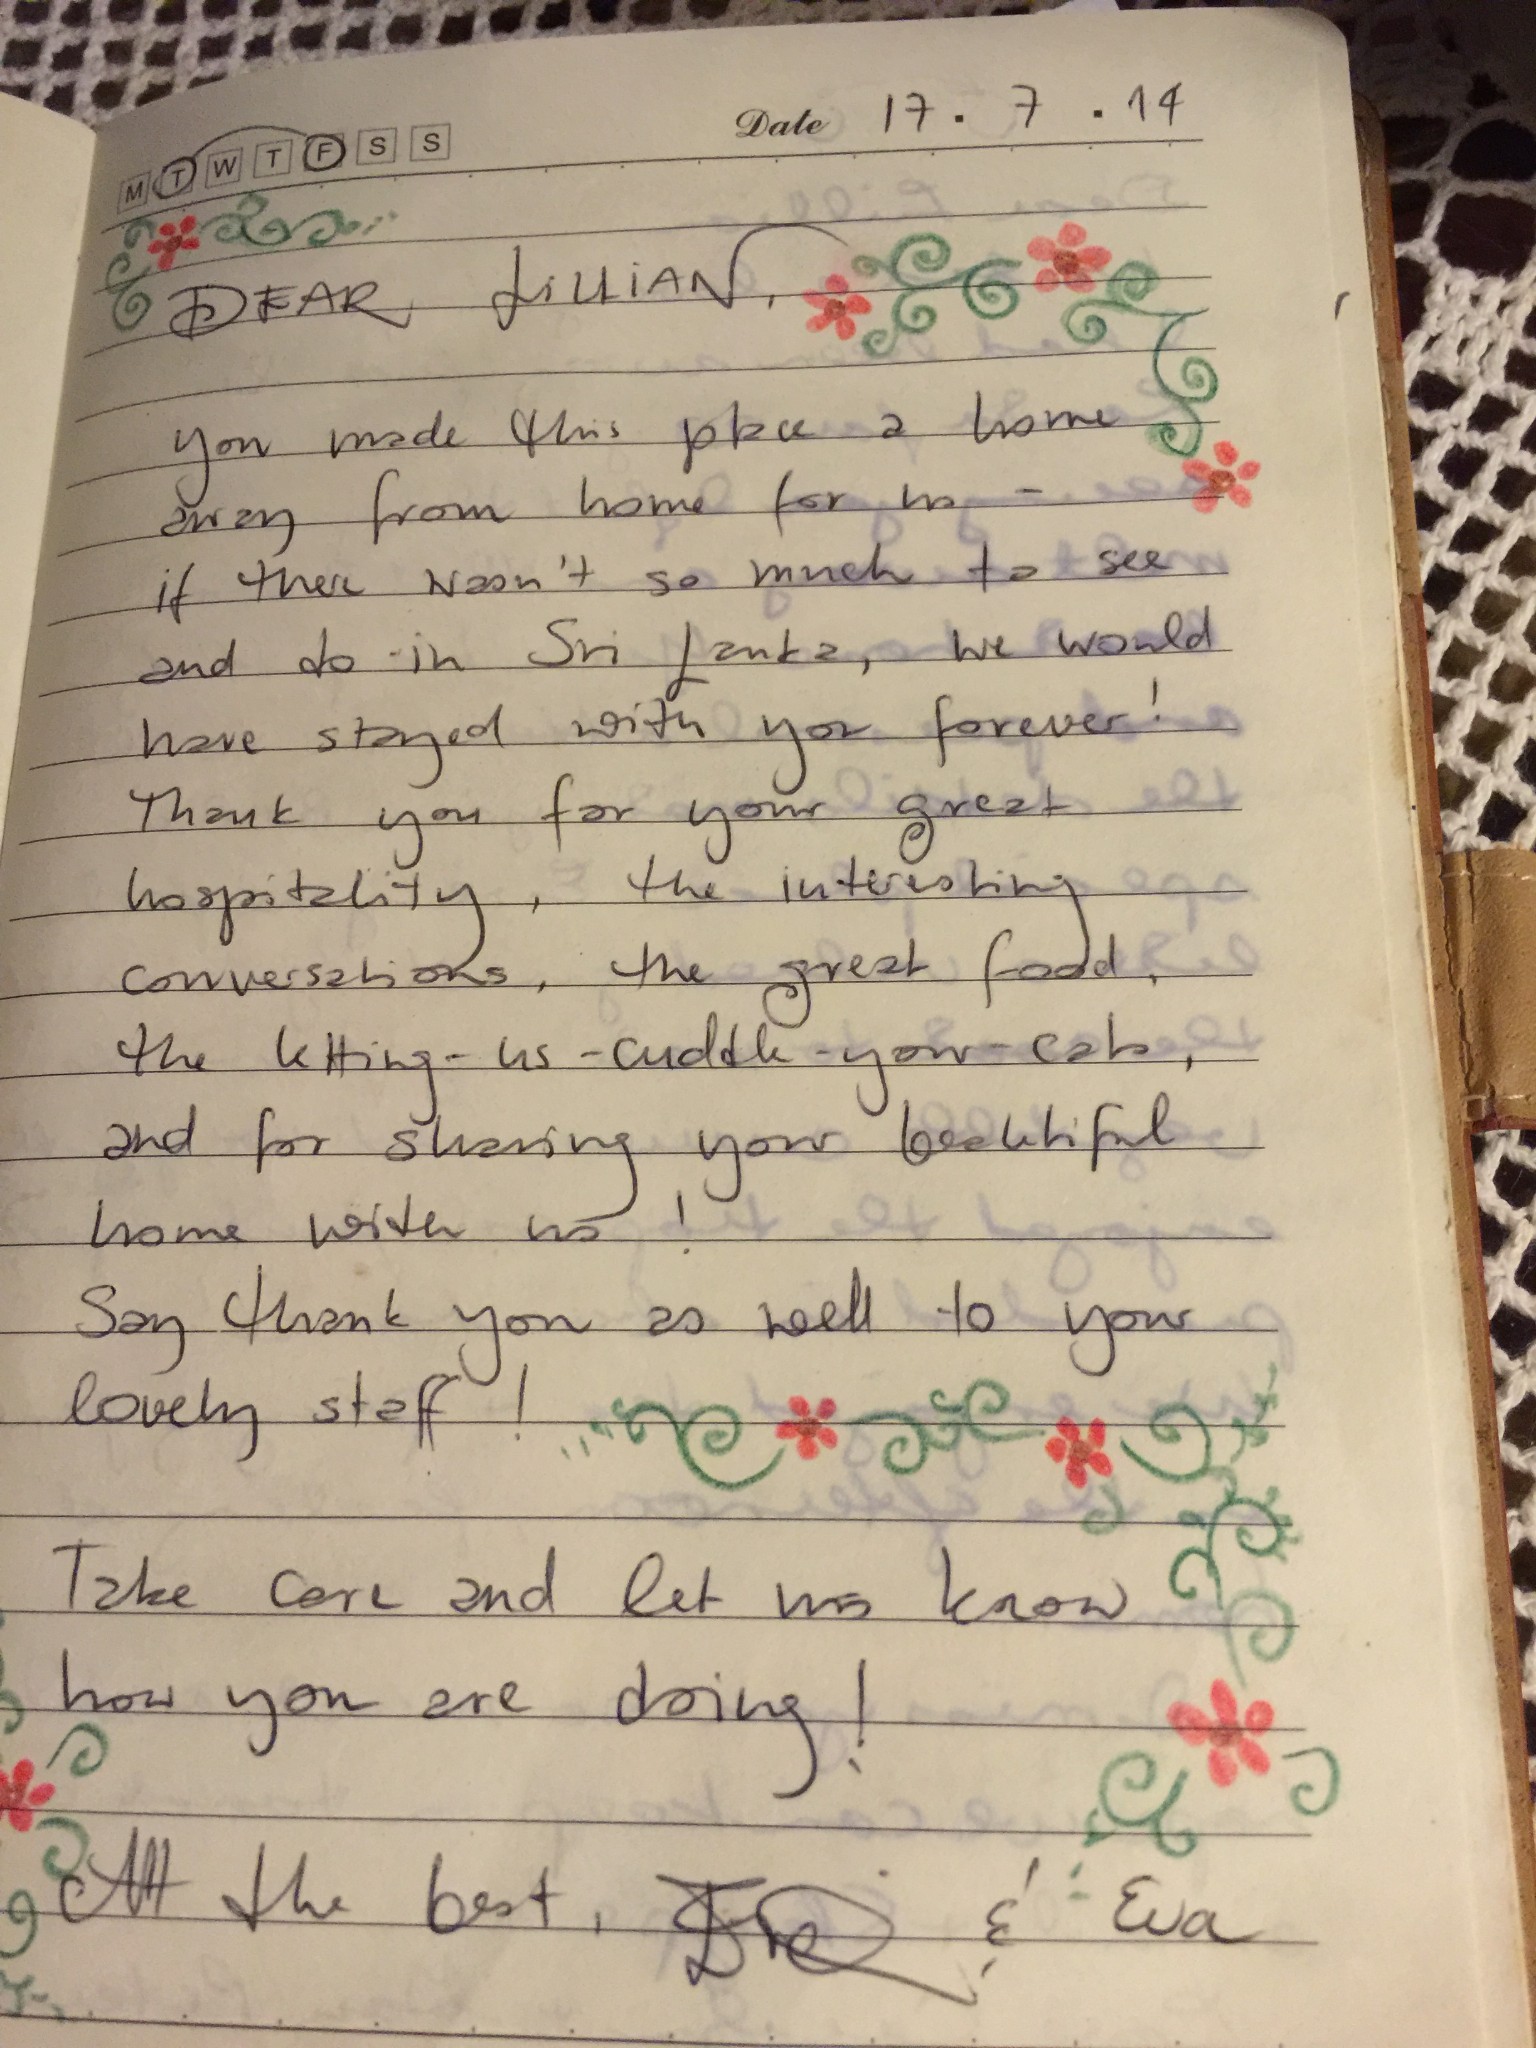 M T W T F S S
Date 17. 7. 14
DEAR LILLIAN,
you made this place a home
away from home for us -
if there wasn't so much to see
and do in Sri Lanka, we would
have stayed with you forever!
Thank you for your great
hospitality, the interesting
conversations, the great food,
the letting-us-cuddle-your-cats,
and for sharing your beautiful
home with us!
Say thank you as well to your
lovely staff!
Take care and let us know
how you are doing!
All the best, & Eva